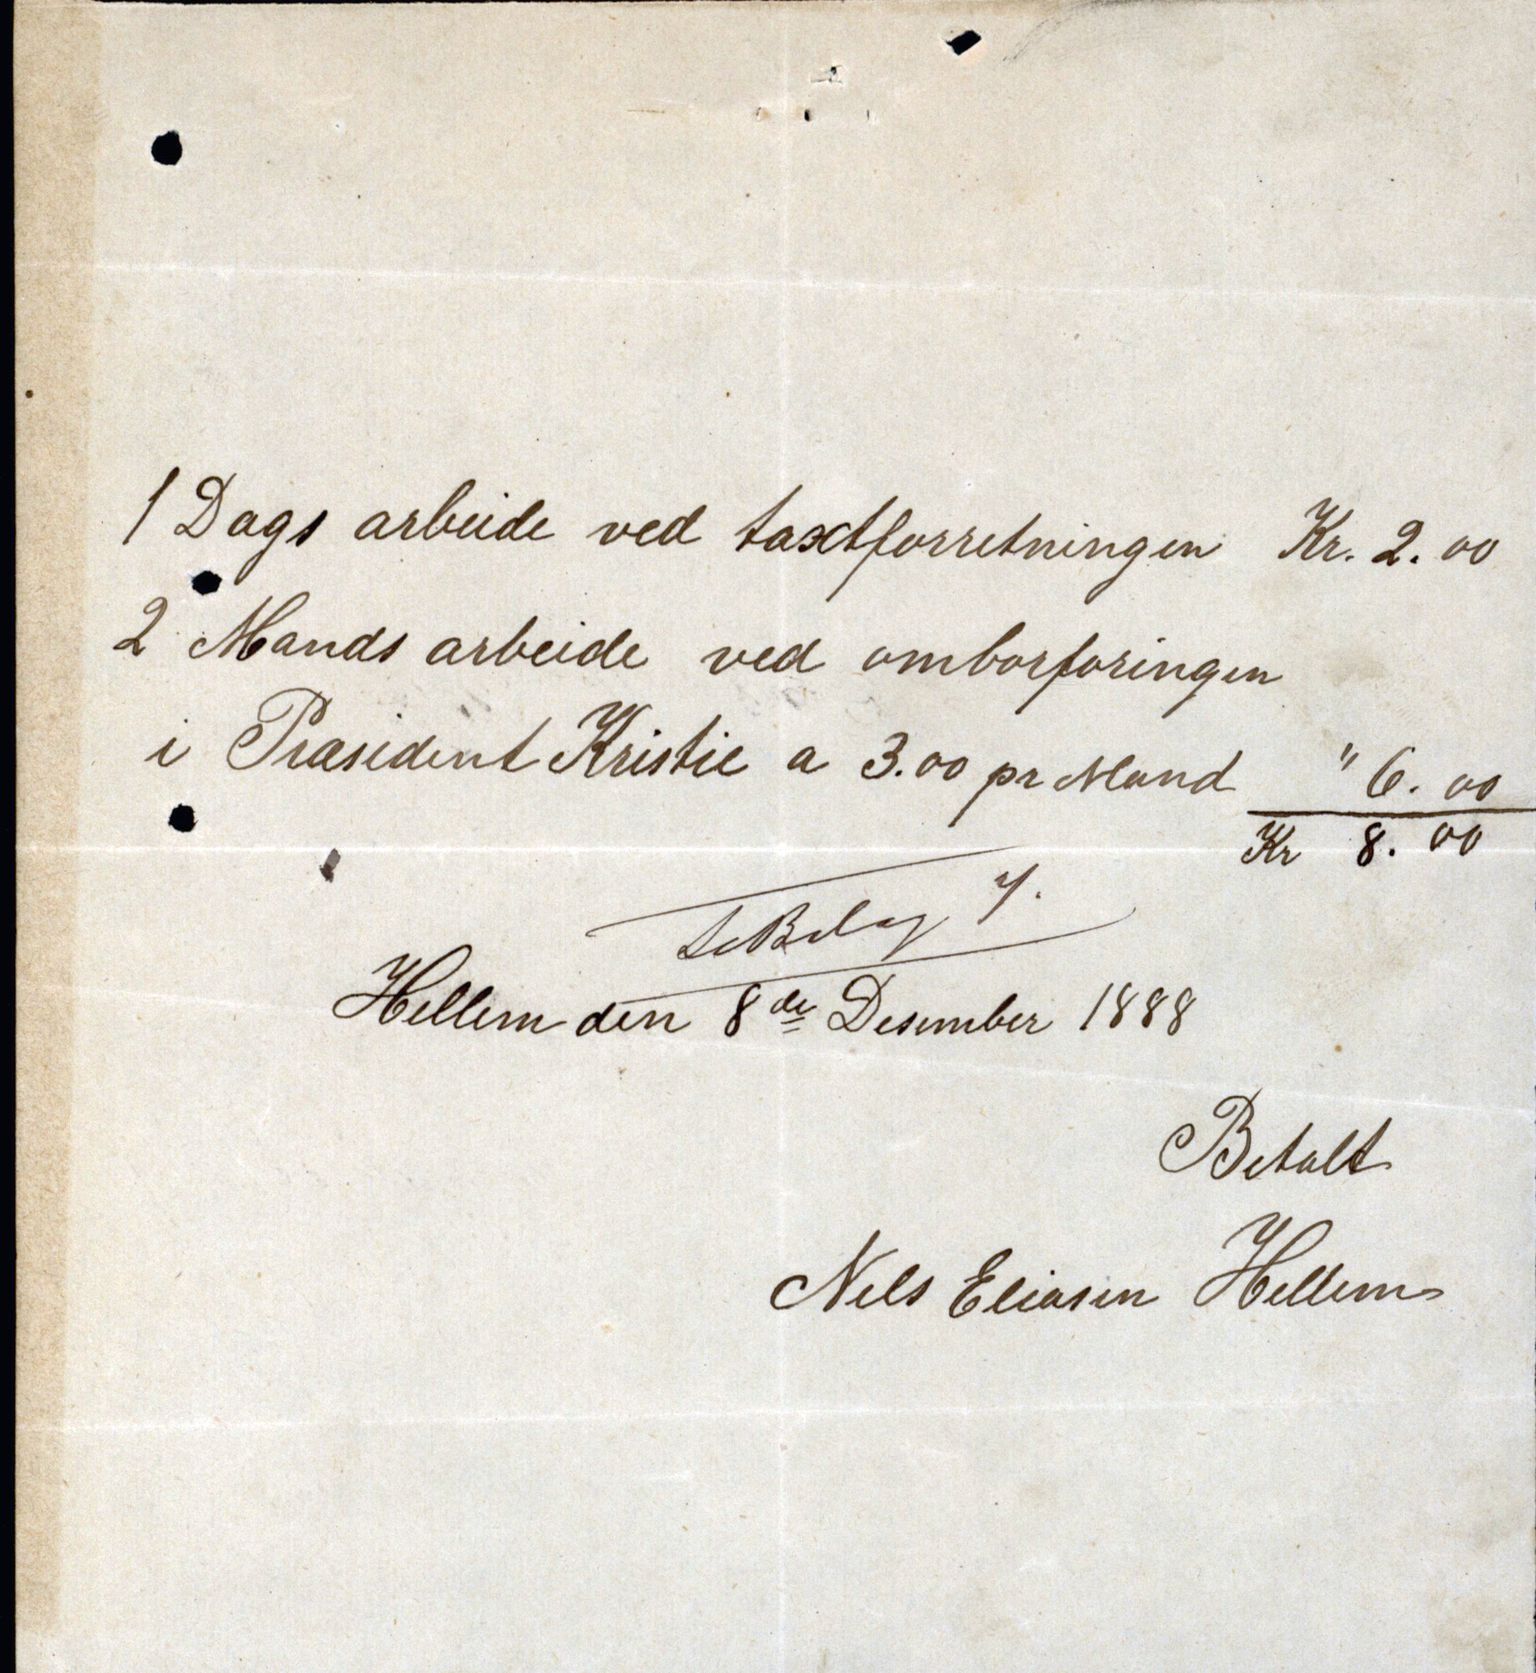 1 Dags arbeide ved taxtforretningen Kr. 2.00
2 Mands arbeide ved omborforingen
i Præsident Kristie a 3.00 pr Mand " 6.00
Kr 8.00
Bilag 7.
Hellem den 8de Desember 1888
Betalt
Nels Eliasen Hellem